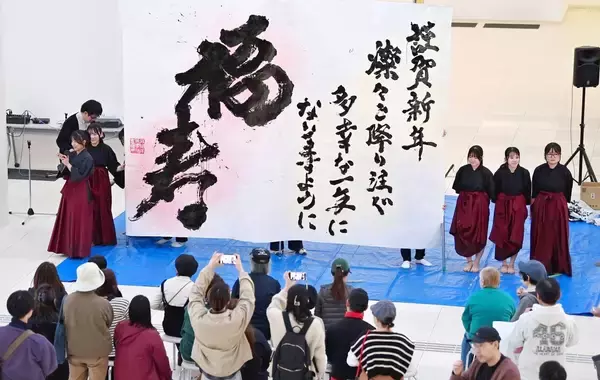 謹賀新年
燦々と降り注ぐ
多幸な一年に
なりますように
福寿